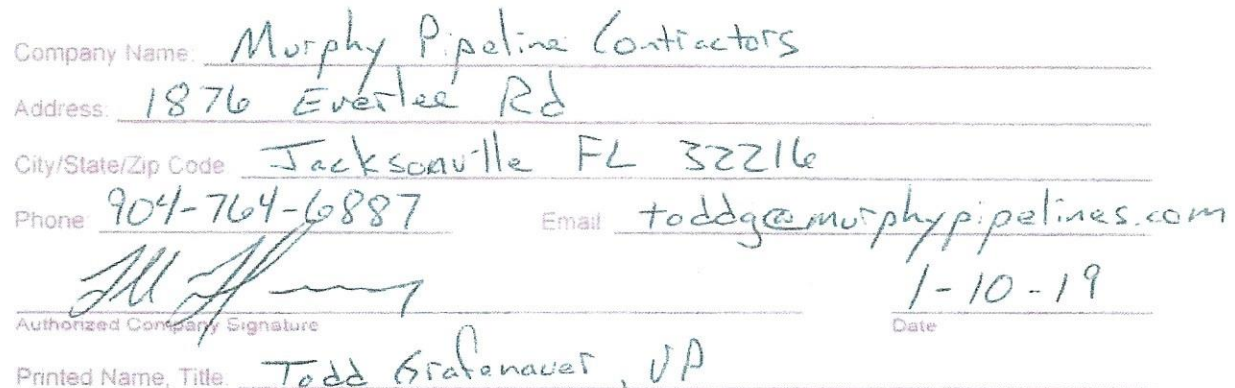 Company Name: Murphy Pipeline Contractors
Address: 1876 Everlee Rd
City/State/Zip Code Jacksonville FL 32216
Phone 904-764-6887 Email toddg@murphypipelines.com
1-10-19
Authorized Company Signature Date
Printed Name, Title: Todd Grafenauer, VP